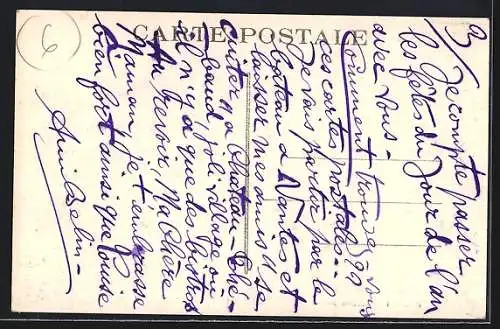 CARTE POSTALE
6
3/ Je compte passer
les fêtes du Jour de l'an
avec vous -
Comment trouvez vous
ces cartes postales ??
Je vais partir par le
bateau à Nantes et
laisser mes amis se
à Chateau-Thé-
baud, joli village où
il n'y a que des bistrots
Au revoir, Ma chère
Maman, je t'embrasse
bien fort ainsi que Louise